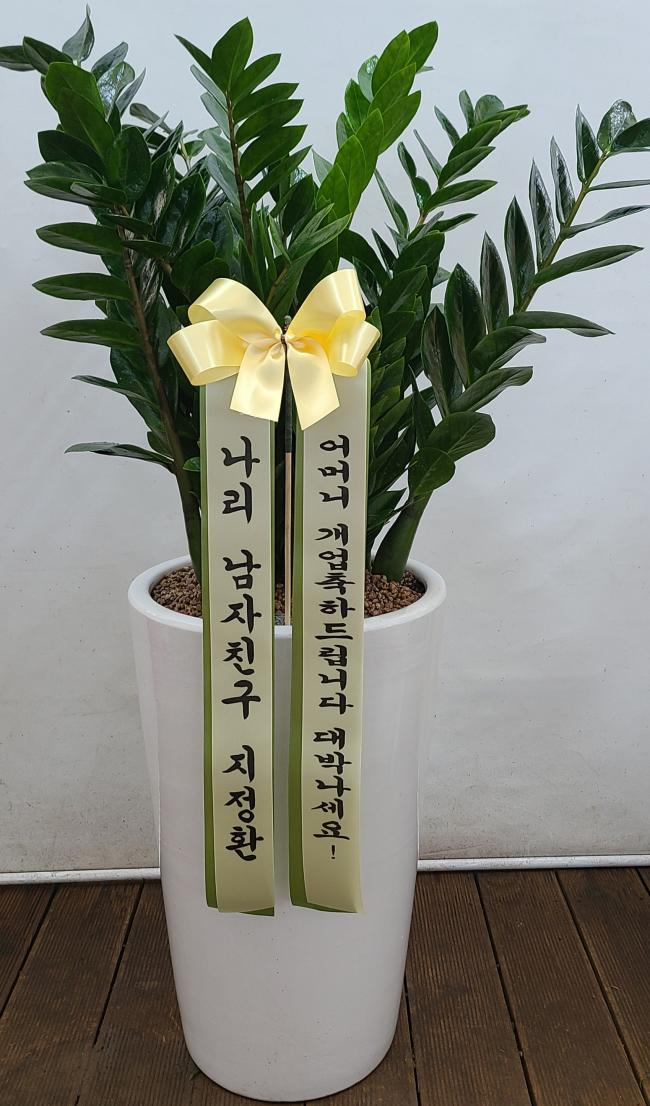 나리 남자친구 지정환
어머니 개업축하드립니다 대박나세요!